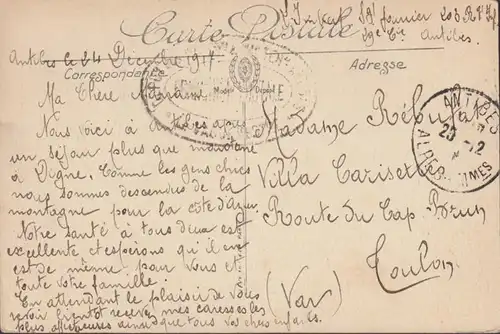 Sgt fournier 203 R.
Carte Postale
19e Cie Antibes
Antibes le 24 Décembre 1917
Correspondance
Adresse
Ma Chère Marraine
Nous voici à Antibes après
un séjour plus que monotone
à Digne. Comme les gens chics
nous sommes descendus de la
montagne pour la côte d'Azur
Notre santé à tous deux est
excellente, et espérons qu'il en
est de même pour vous et
toute votre famille.
En attendant le plaisir de vous
revoir bientôt recevez mes caresses les
plus affectueuses ainsi que tous vos chers enfants.
Madame Rébufat
Villa Cariset
Route du Cap Brun
Toulon
(Var)
ANTIBES
ALPES MMES